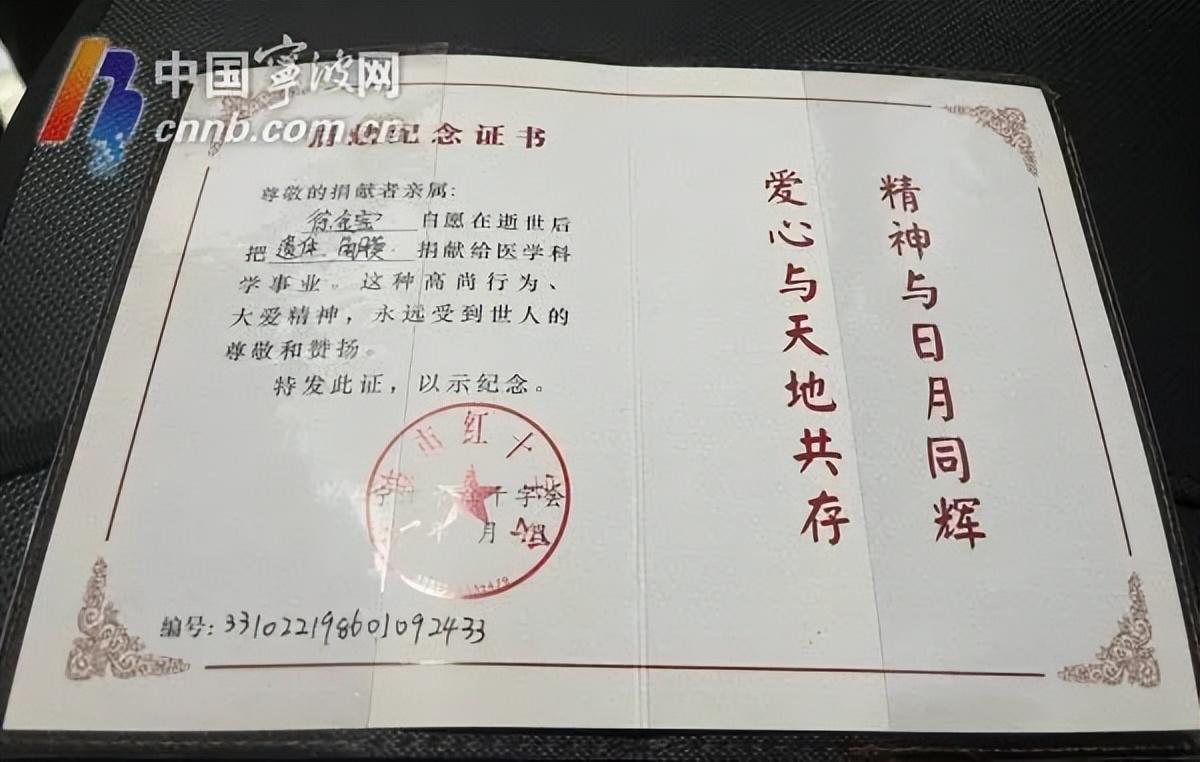 中国宁波网
cnnb.com.cn
纪念证书
尊敬的捐献者亲属:
徐金宝 自愿在逝世后
把 遗体 角膜 捐献给医学科
学事业。这种高尚行为、
大爱精神，永远受到世人的
尊敬和赞扬。
特发此证，以示纪念。
市红十字会
十字会
月
编号: 331022198601092433
精神与日月同辉
爱心与天地共存